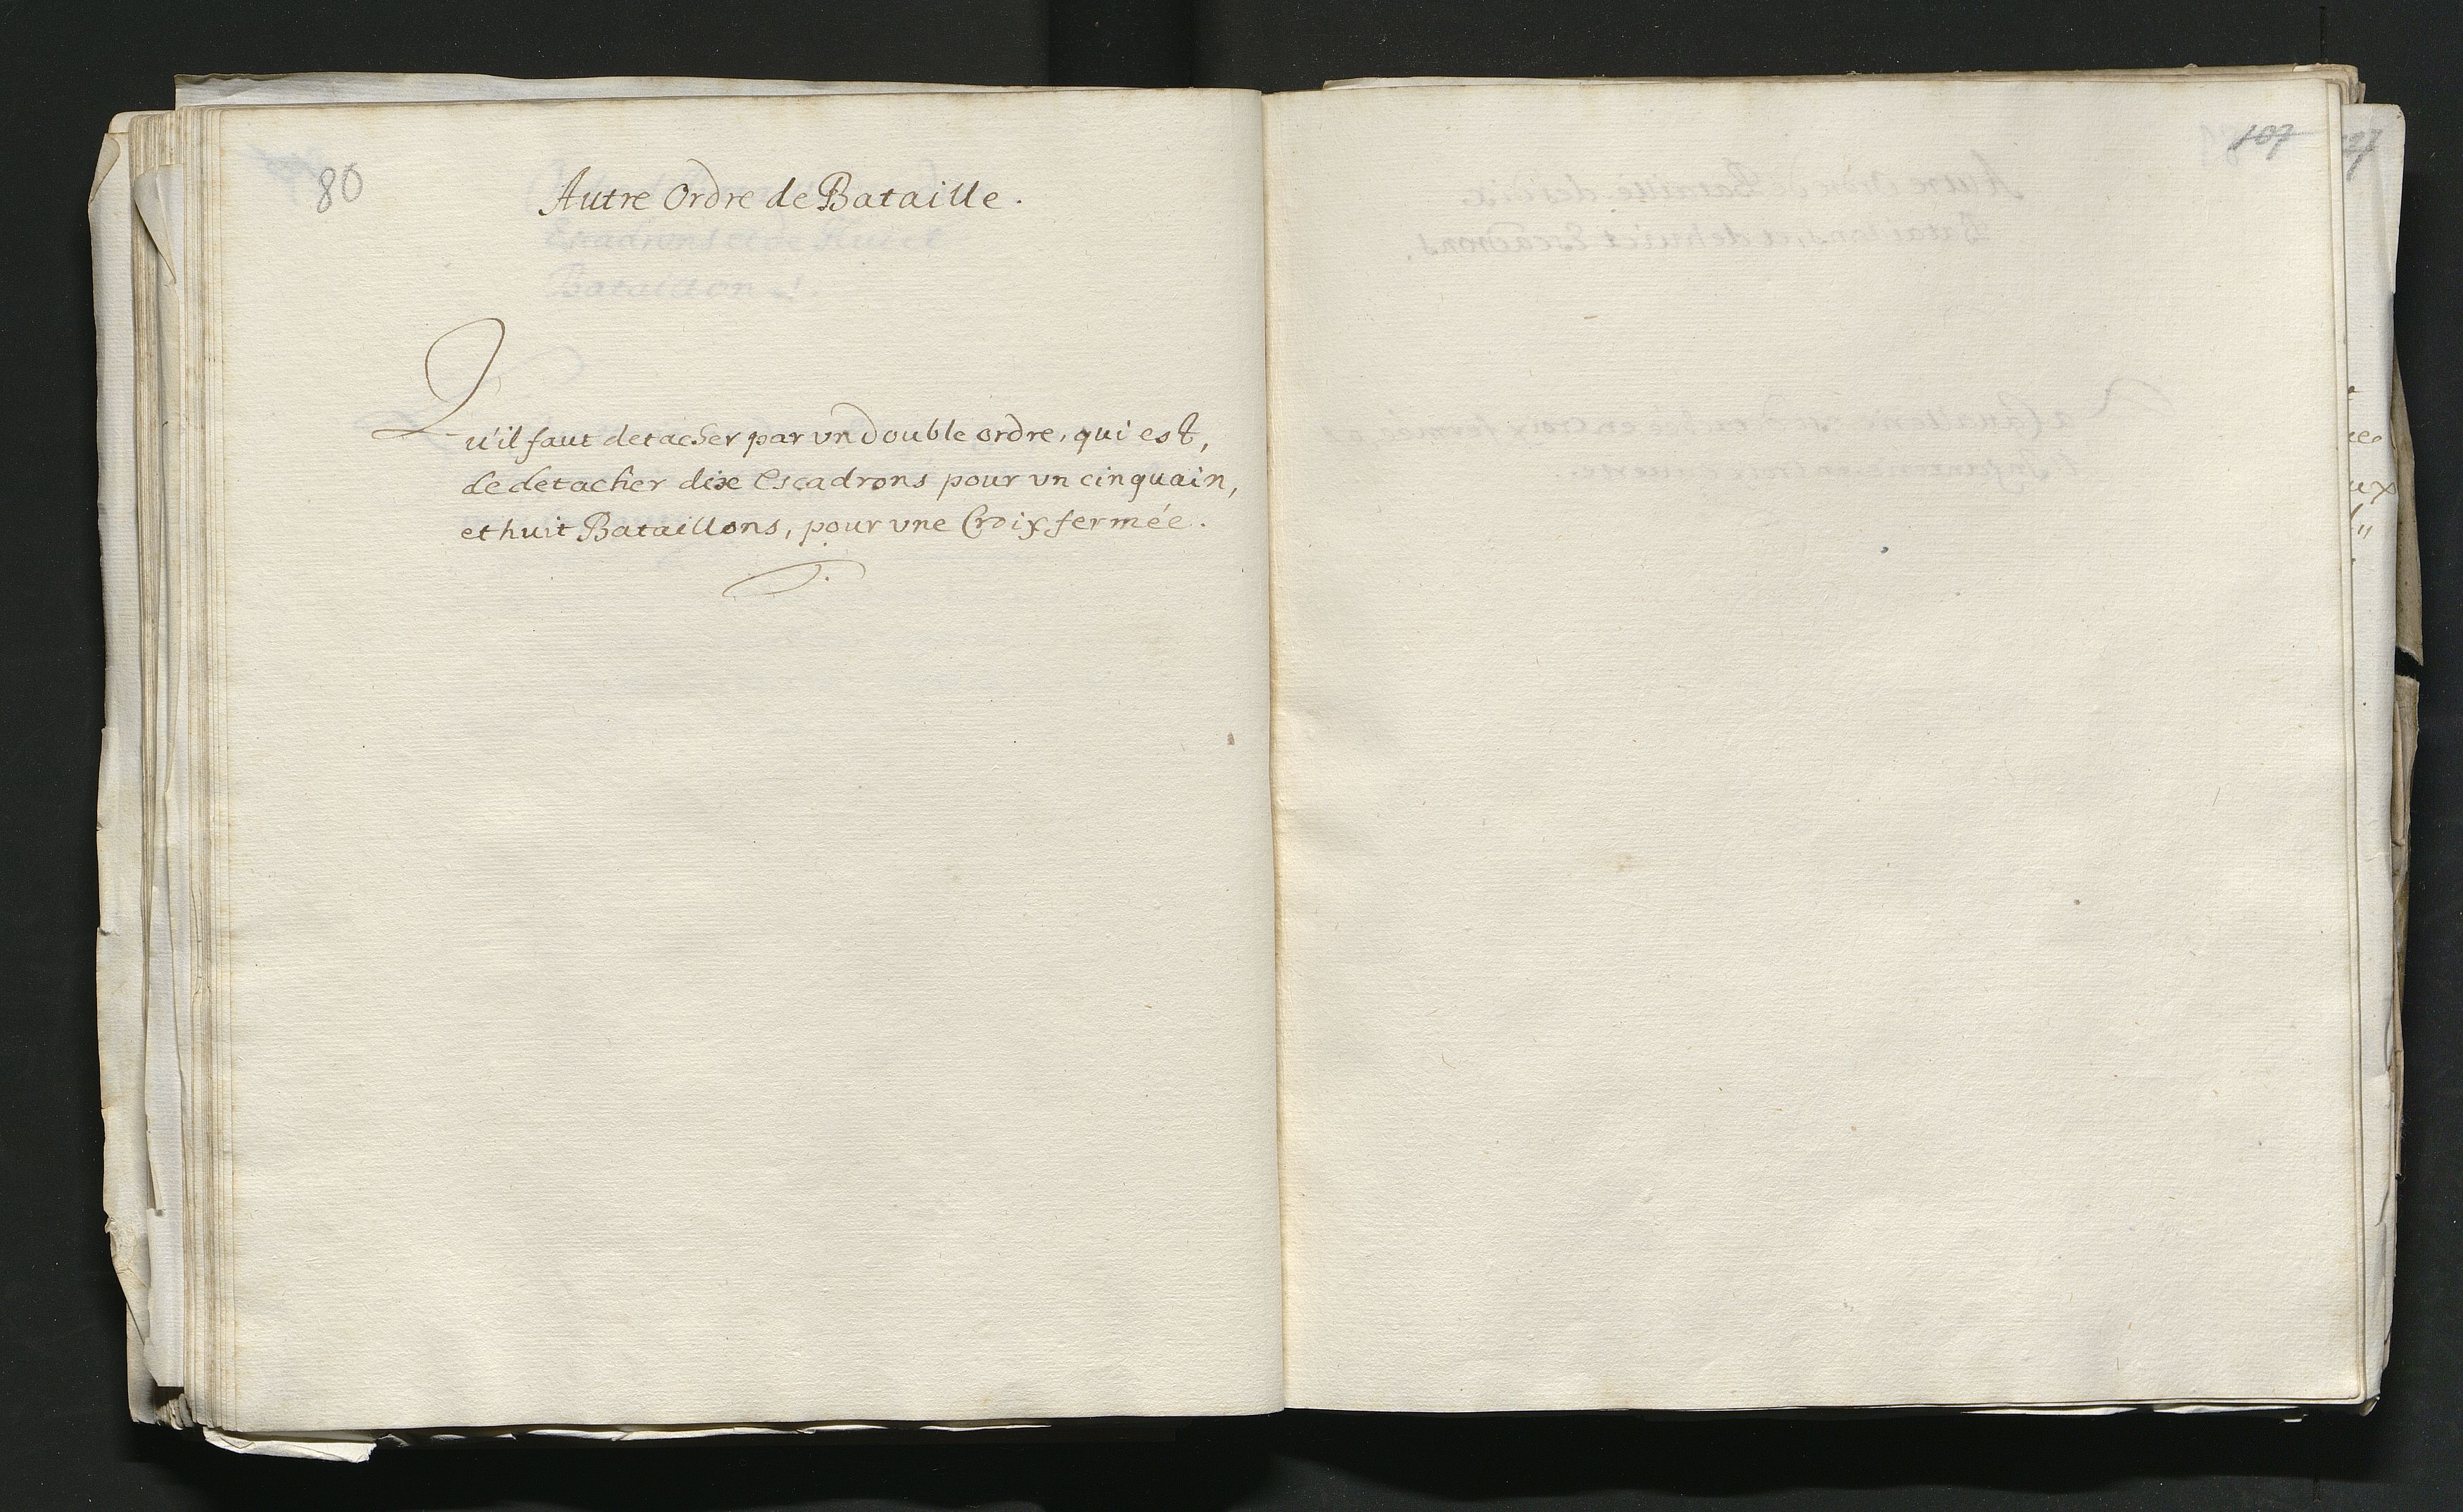 80
Autre Ordre de Bataille.
Qu'il faut detacher par vn double ordre, qui est,
de detacher dix Escadrons pour vn cinquain,
et huit Bataillons, pour vne Croix fermée.
107